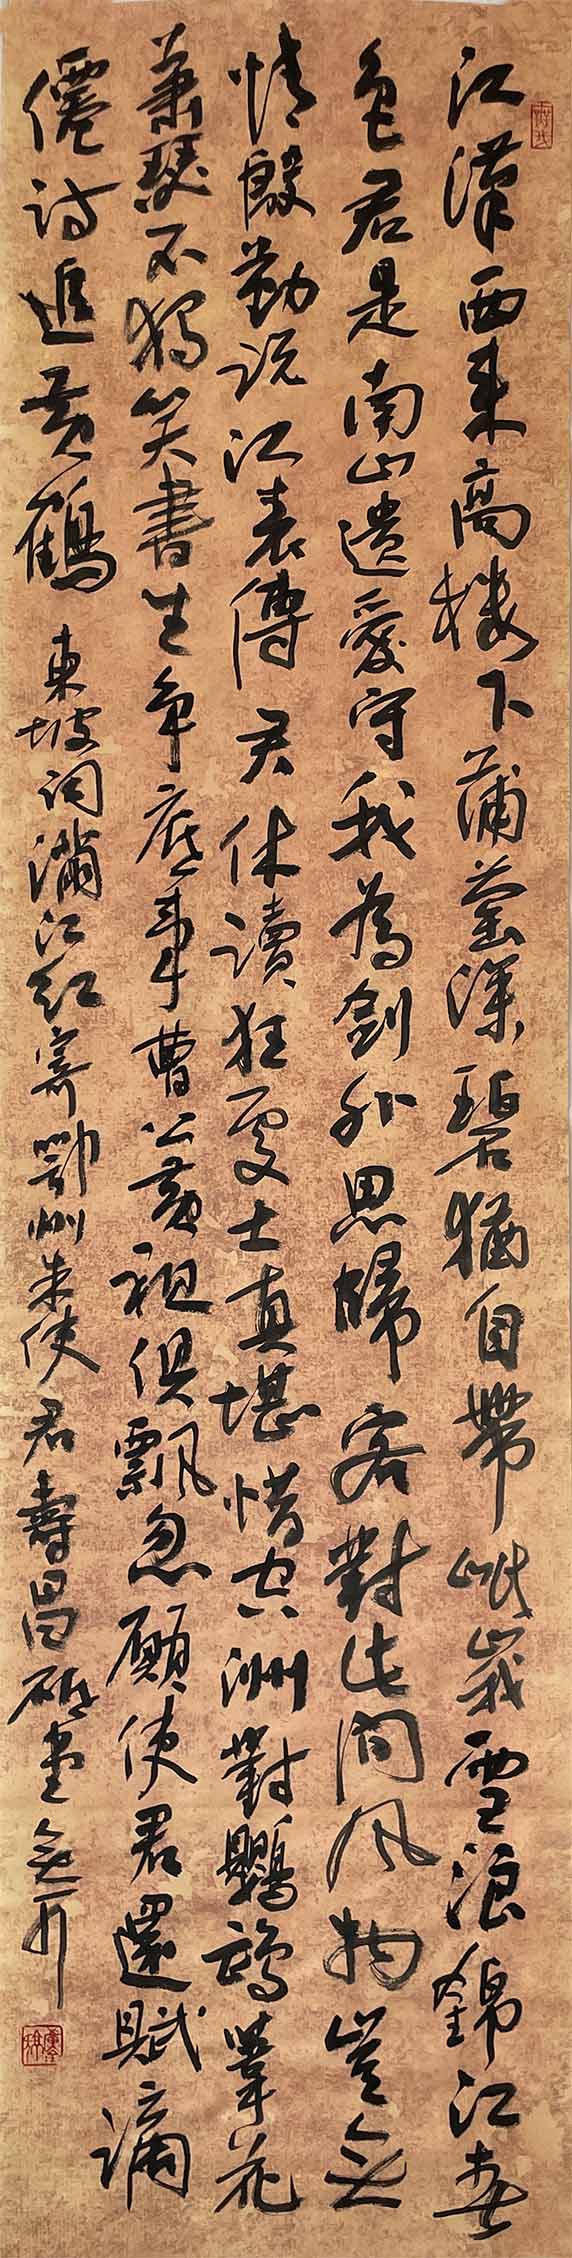 江漢西來高樓下蒲萄深碧猶自帶岷峨雪浪錦江春
色君是南山遺愛守我為劍外思歸客對此間風物豈无
情殷勤說江表傳君休讀狂處士真堪惜空洲對鸚鵡葦花
蕭瑟不獨笑書生爭底事曹公黃祖俱飄忽願使君還賦謫
僊詩追黃鶴 東坡詞滿江紅寄鄂州朱使君壽昌